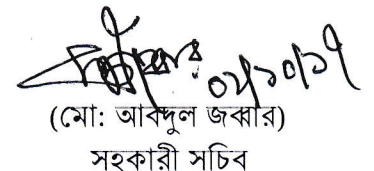 ০২/১০/১৭
(মো: আবদুল জব্বার)
সহকারী সচিব